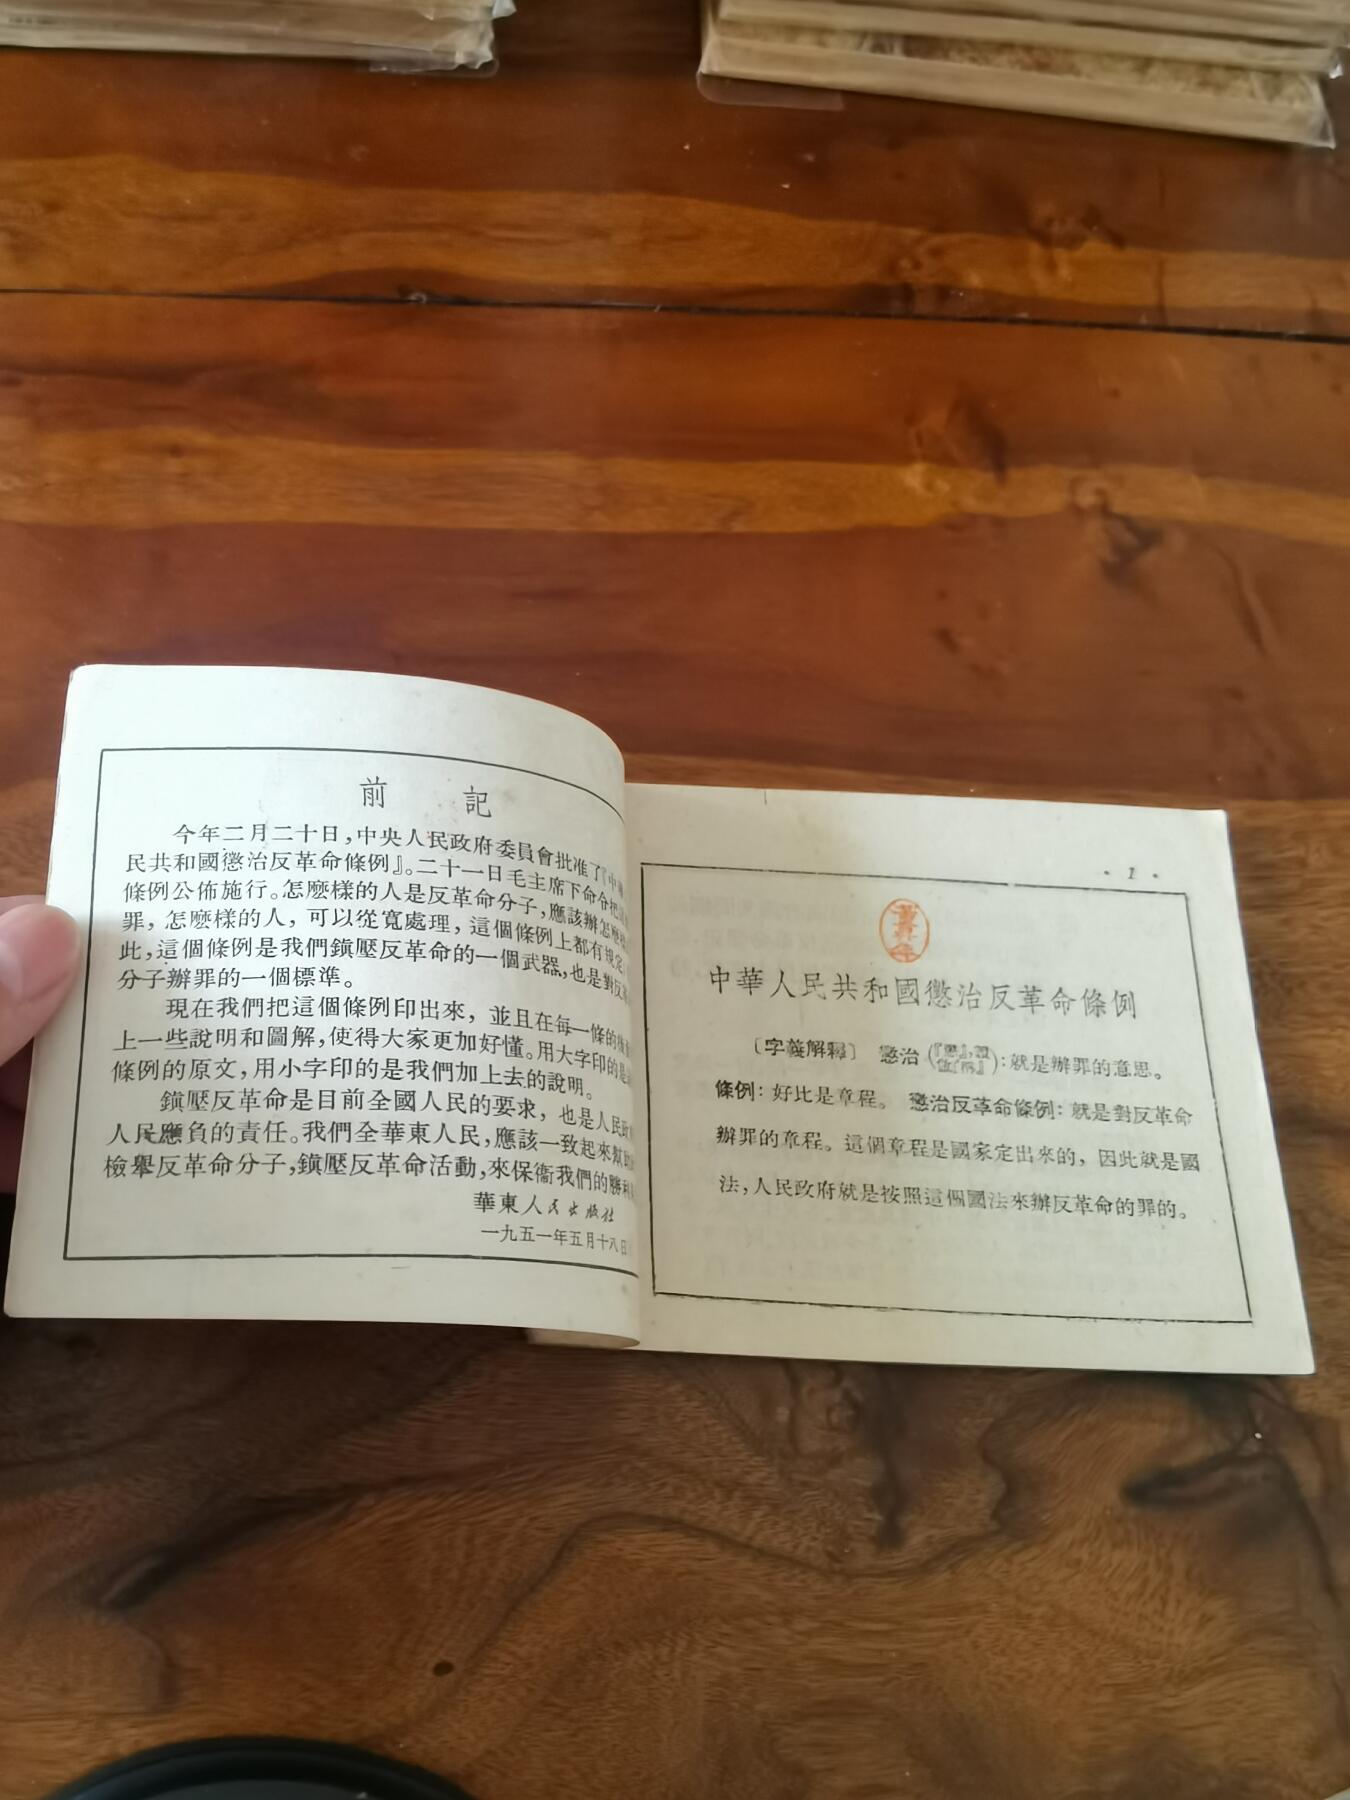 前記
今年二月二十日，中央人民政府委員會批准了『中
民共和國懲治反革命條例』。二十一日毛主席下命令把這
條例公佈施行。怎麽樣的人是反革命分子，應該辦怎麽樣
罪，怎麽樣的人，可以從寬處理，這個條例上都有規定
此，這個條例是我們鎮壓反革命的一個武器，也是對反
分子辦罪的一個標準。
現在我們把這個條例印出來，並且在每一條的後
上一些說明和圖解，使得大家更加好懂。用大字印的是
條例的原文，用小字印的是我們加上去的說明。
鎮壓反革命是目前全國人民的要求，也是人民政
人民應負的責任。我們全華東人民，應該一致起來幫助
檢舉反革命分子，鎮壓反革命活動，來保衞我們的勝利
華東人民出版社
一九五一年五月十八日
·1·
中華人民共和國懲治反革命條例
〔字義解釋〕 懲治：就是辦罪的意思。
條例：好比是章程。 懲治反革命條例：就是對反革命
辦罪的章程。這個章程是國家定出來的，因此就是國
法，人民政府就是按照這個國法來辦反革命的罪的。